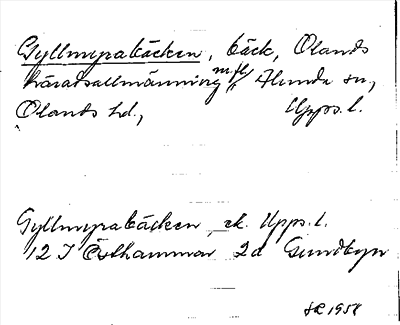 Gyllmyrabäcken, bäck, Olands
häradsallmänning m.fl., Alunda sn,
Olands hd, Upps. l.
Gyllmyrabäcken, ek. Upps. l.
12 I Östhammar 2d Gundbyn
1958